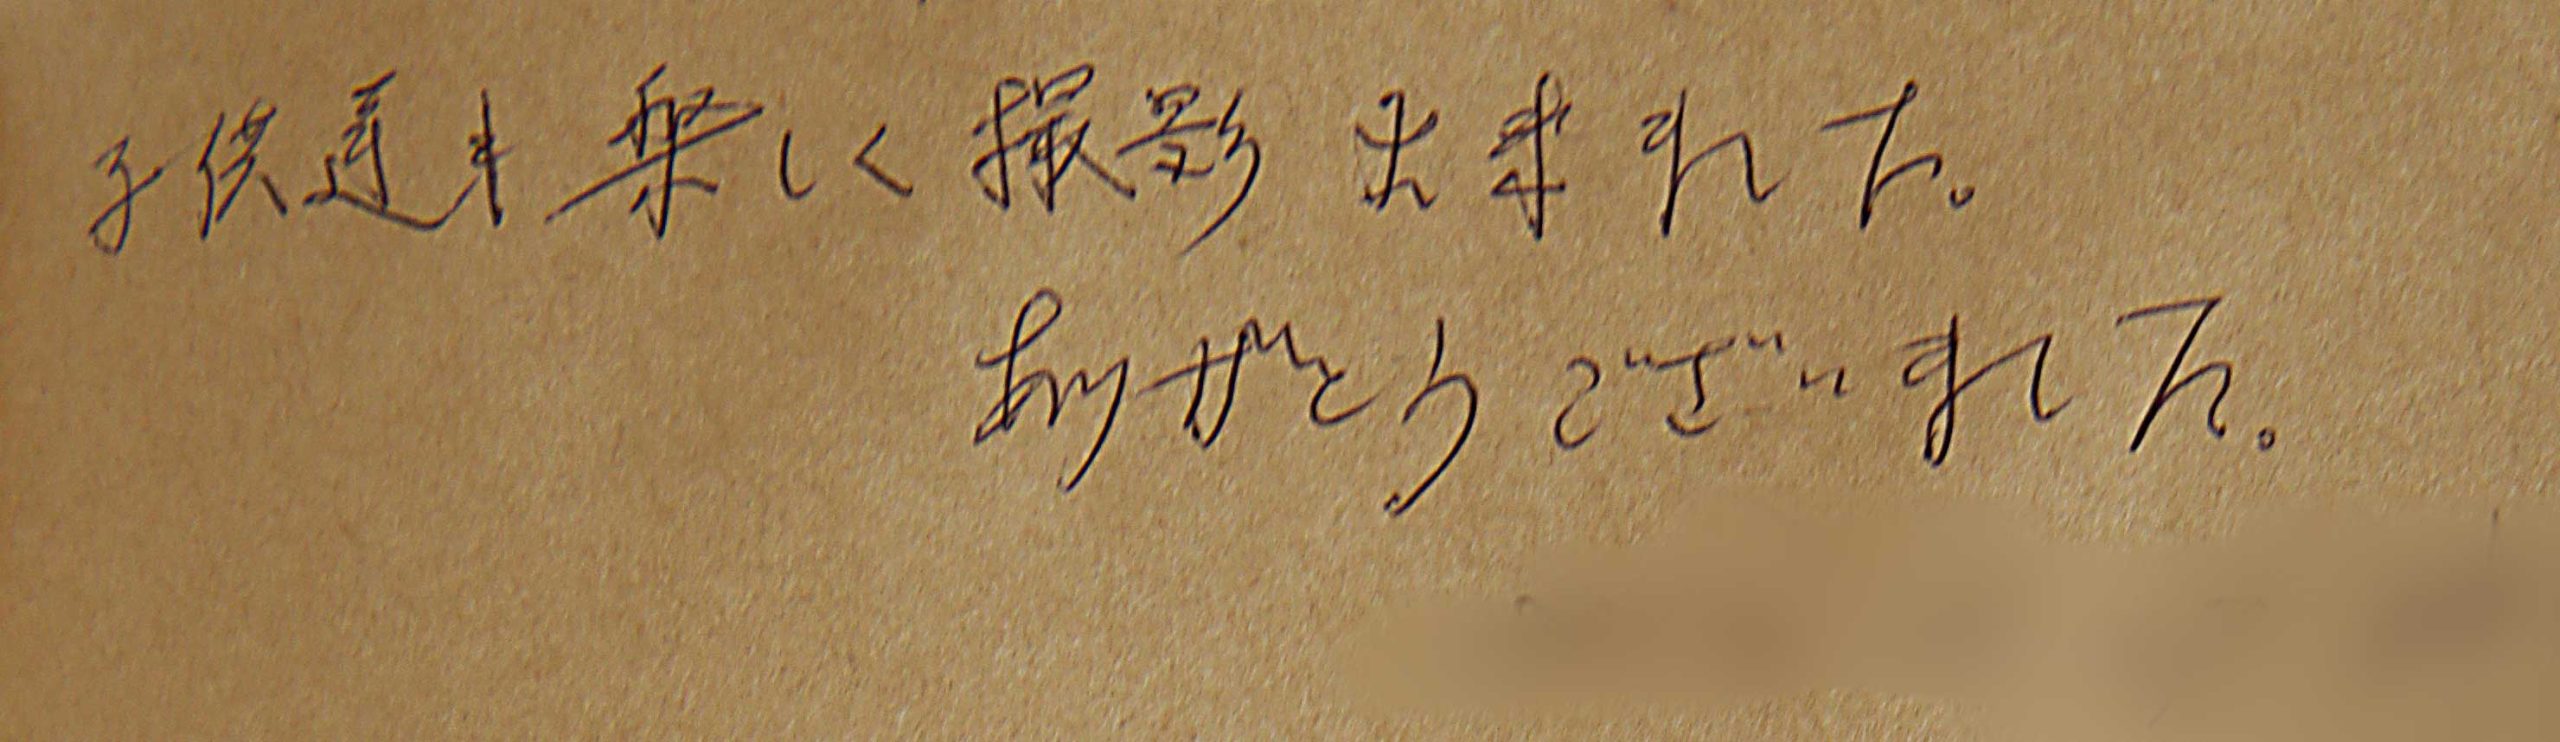 子供達も楽しく撮影出来ました。
ありがとうございました。